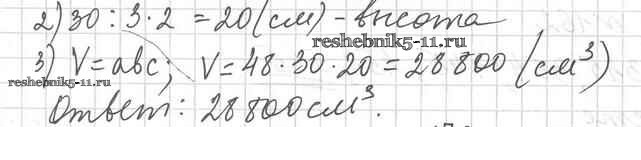 2) 30 : 3 · 2 = 20 (см) - высота
reshebnik5-11.ru
3) V = abc; V = 48 · 30 · 20 = 28 800 (см³)
reshebnik5-11.ru
Ответ: 28 800 см³.